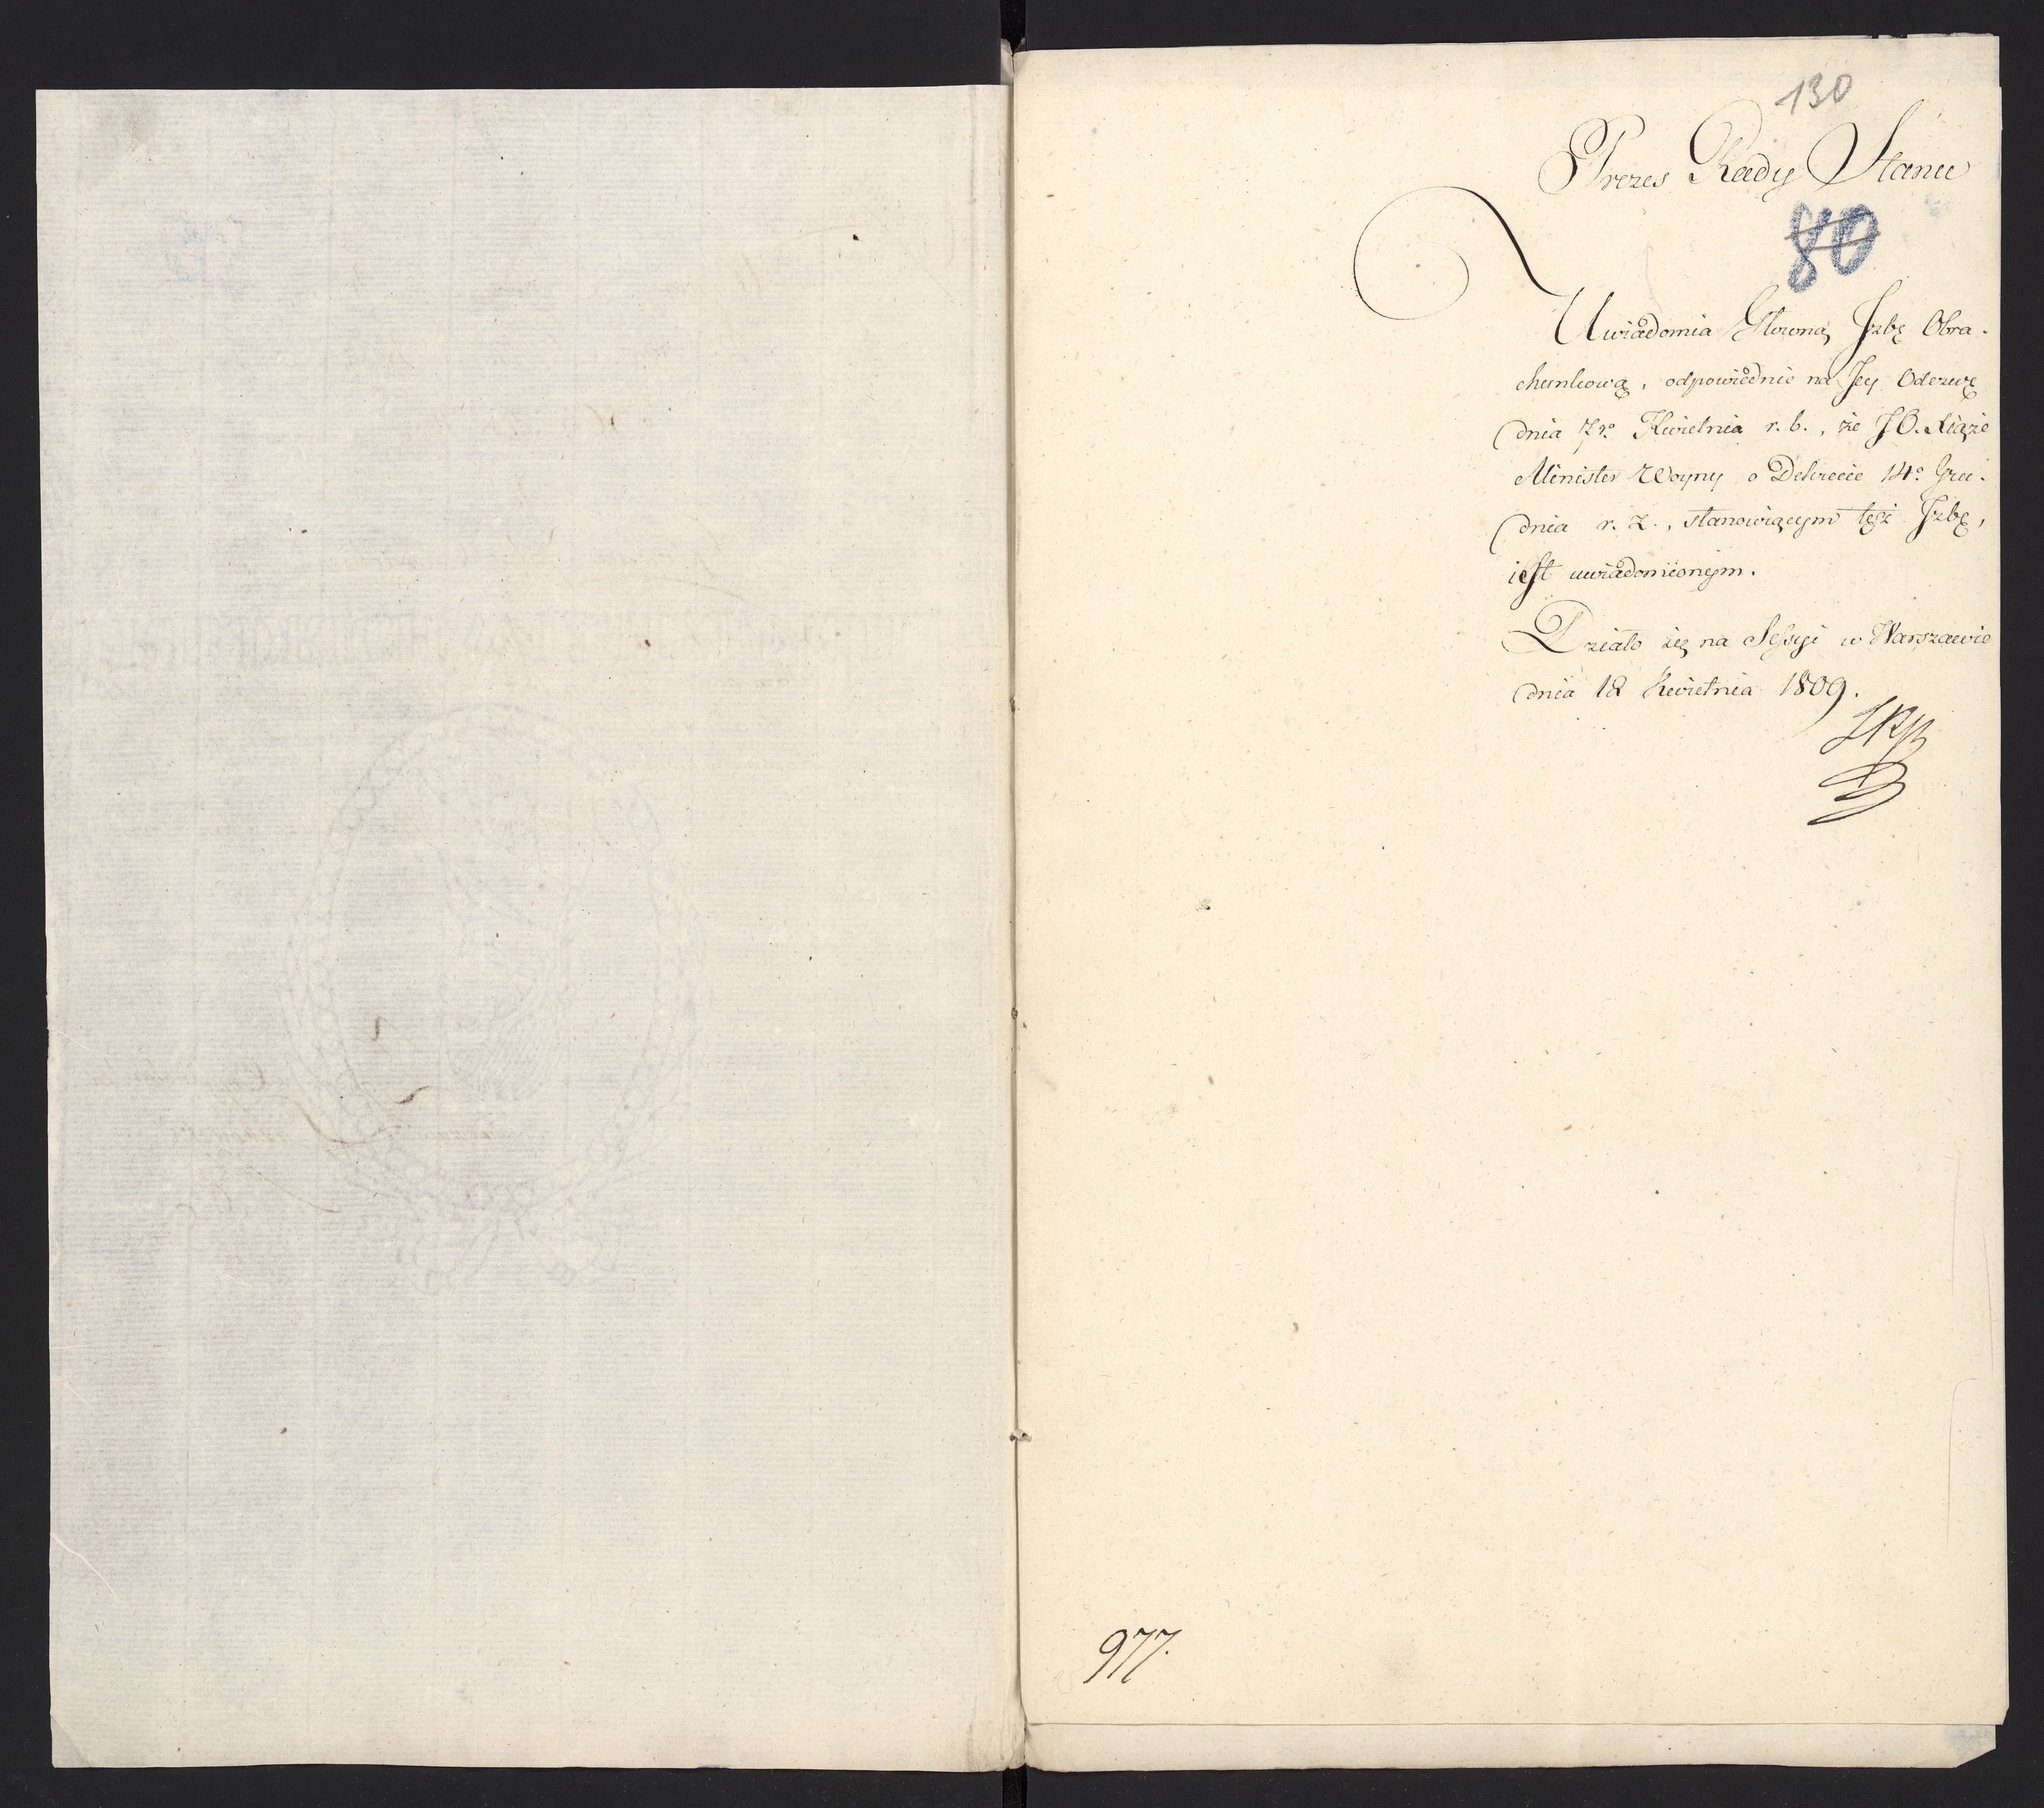 130
Prezes Rady Stanu
80
Uwiadomia Głowną Jzbę Obra-
chunkową, odpowiednie na Jey Odezwę
dnia 7º Kwietnia r. b., że JO. Xiąże
Minister Woyny o Dekrecie 14º Gru-
dnia r. z., stanowiącym tęż Jzbę,
iest uwiadomionym.
Działo się na Sessyi w Warszawie
dnia 18 Kwietnia 1809.
977.